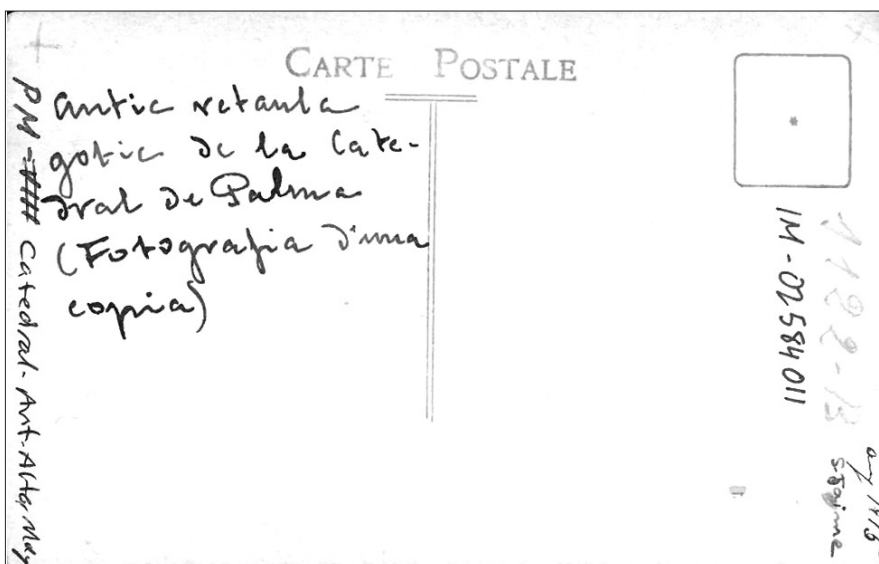 CARTE POSTALE
antic retaula
gotic de la Cate-
dral de Palma
(Fotografia d'una
copia)
PM - Catedral - Ant. Alta May
IM - 02584011
1182-B